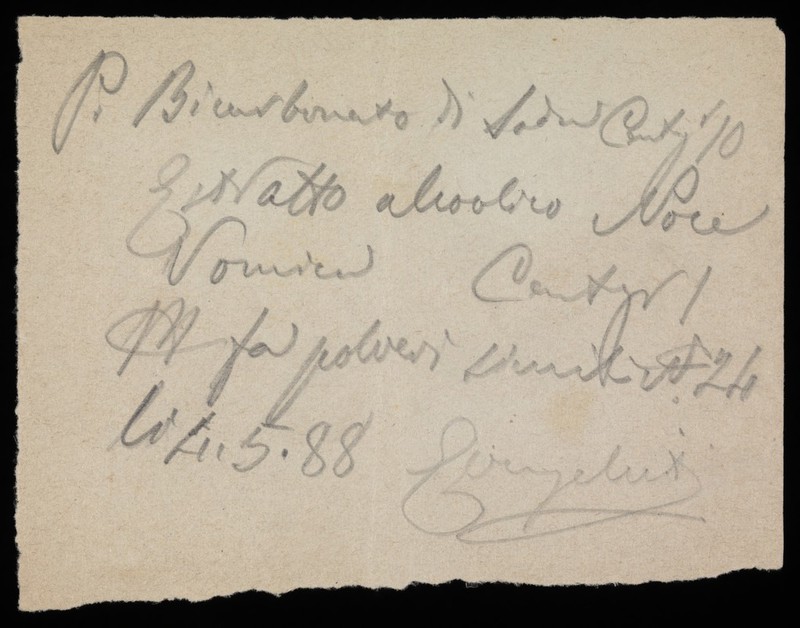 P. Bicarbonato di Sodio Centgr 10
Estratto alcoolico Noce
Vomica Centgr 1
M fa polveri simili N. 24
li 4. 5. 88